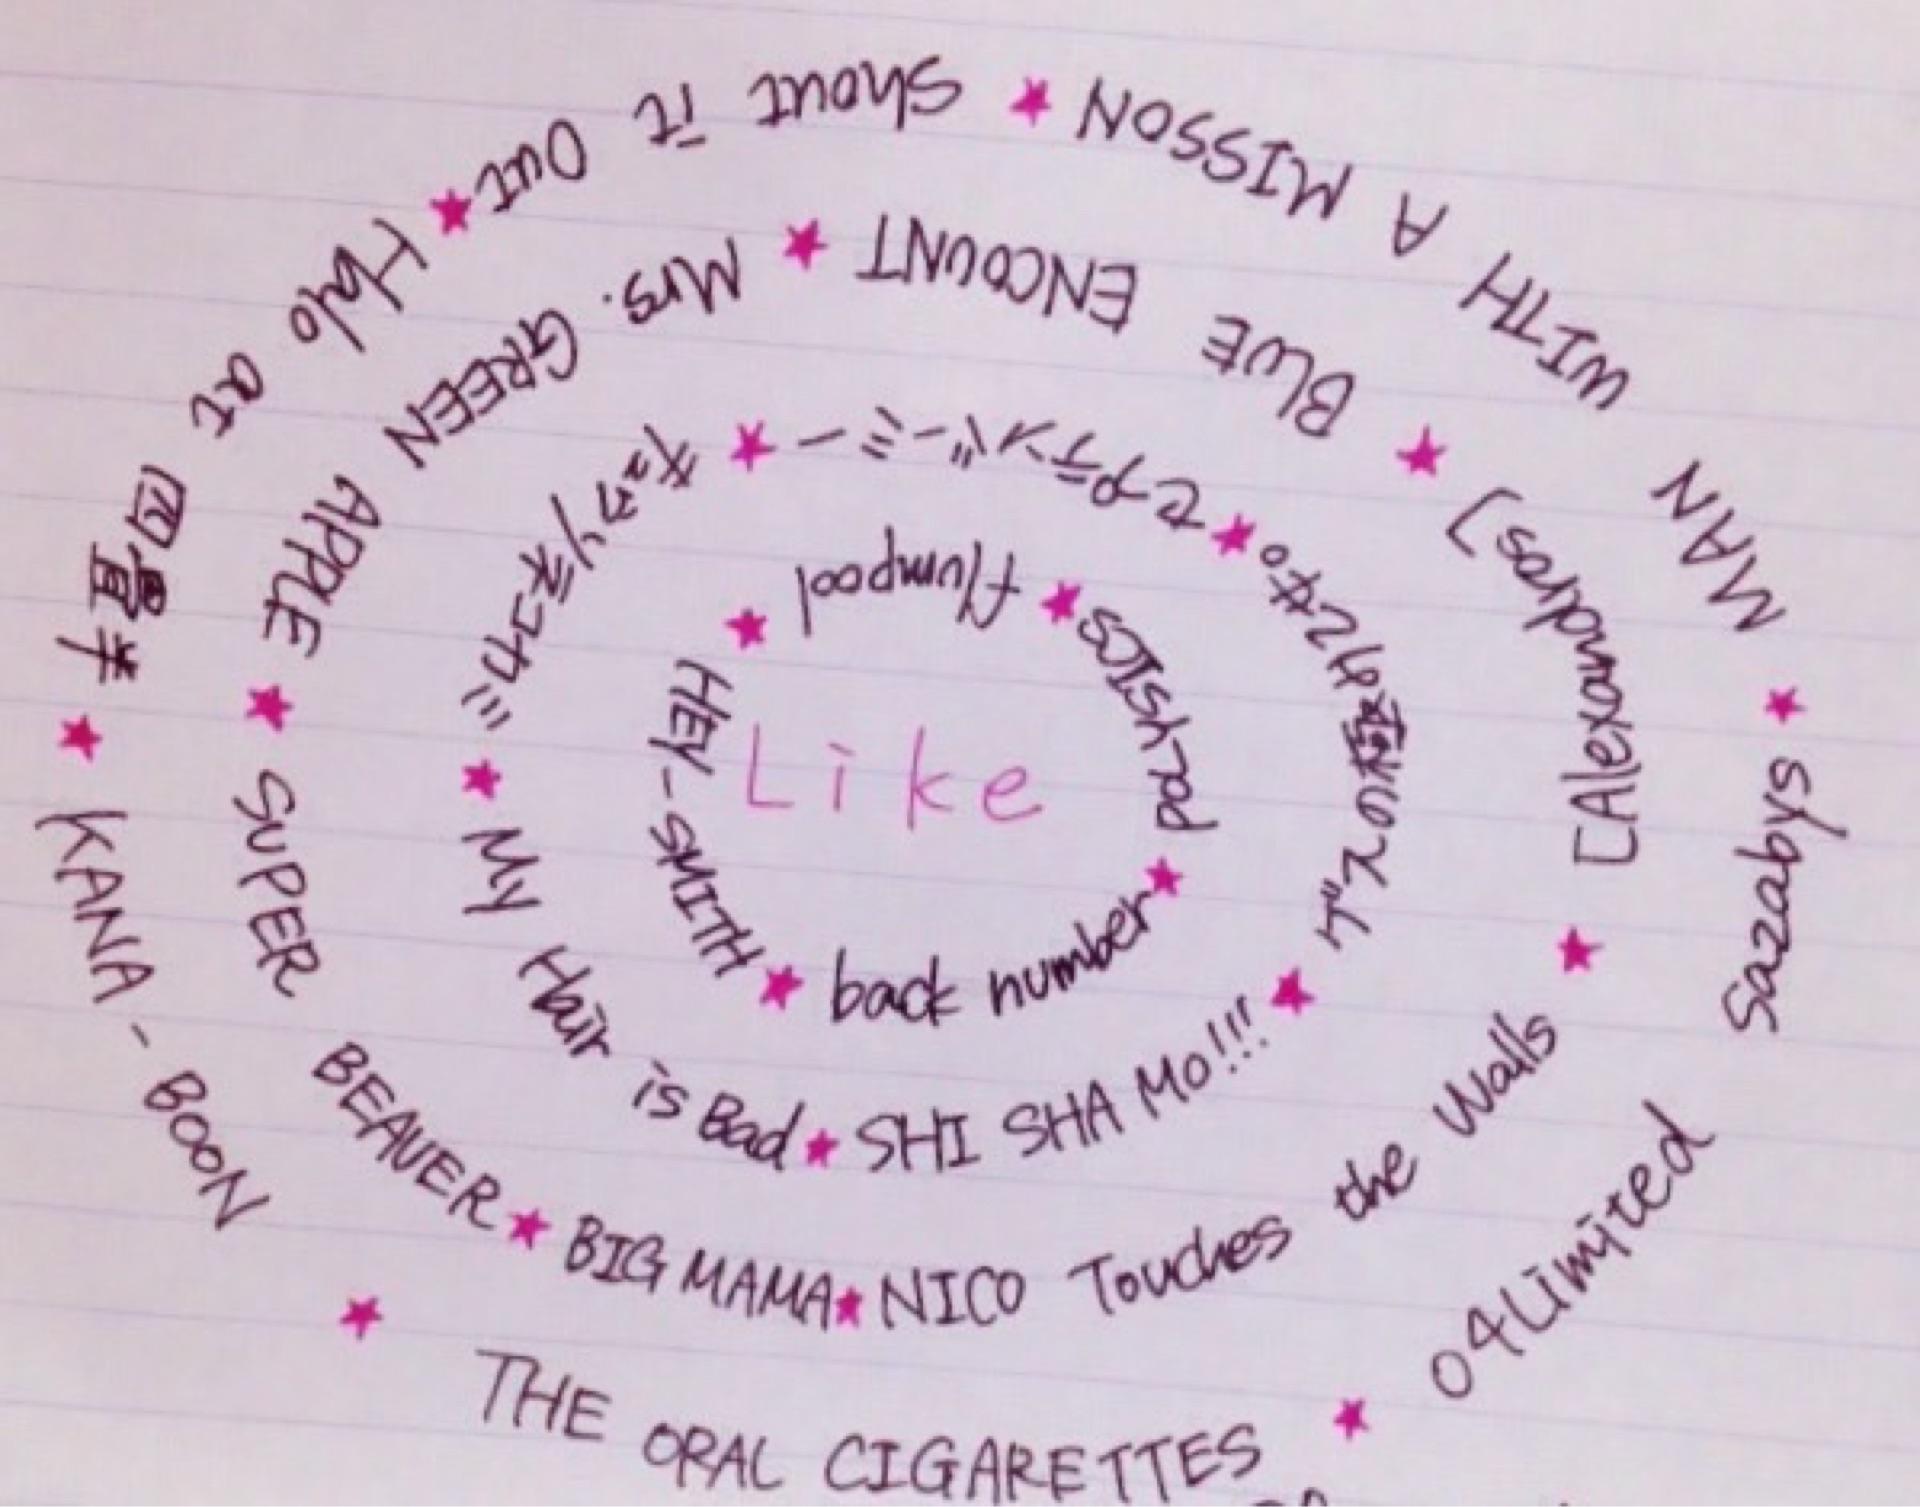 Like
HEY-SMITH ★ back number ★ POLYSICS ★ flumpool ★
My Hair is Bad ★ SHI SHA MO!!! ★ ゲスの極み乙女。 ★ セプテンバーミー ★ キュウソネコカミ ★
SUPER BEAVER ★ BIG MAMA ★ NICO Touches the Walls ★ [Alexandros] ★ BLUE ENCOUNT ★ Mrs. GREEN APPLE ★
KANA-BOON ★ THE ORAL CIGARETTES ★ 04Limited Sazabys ★ MAN WITH A MISSON ★ Shout it Out ★ Halo at 四畳半 ★